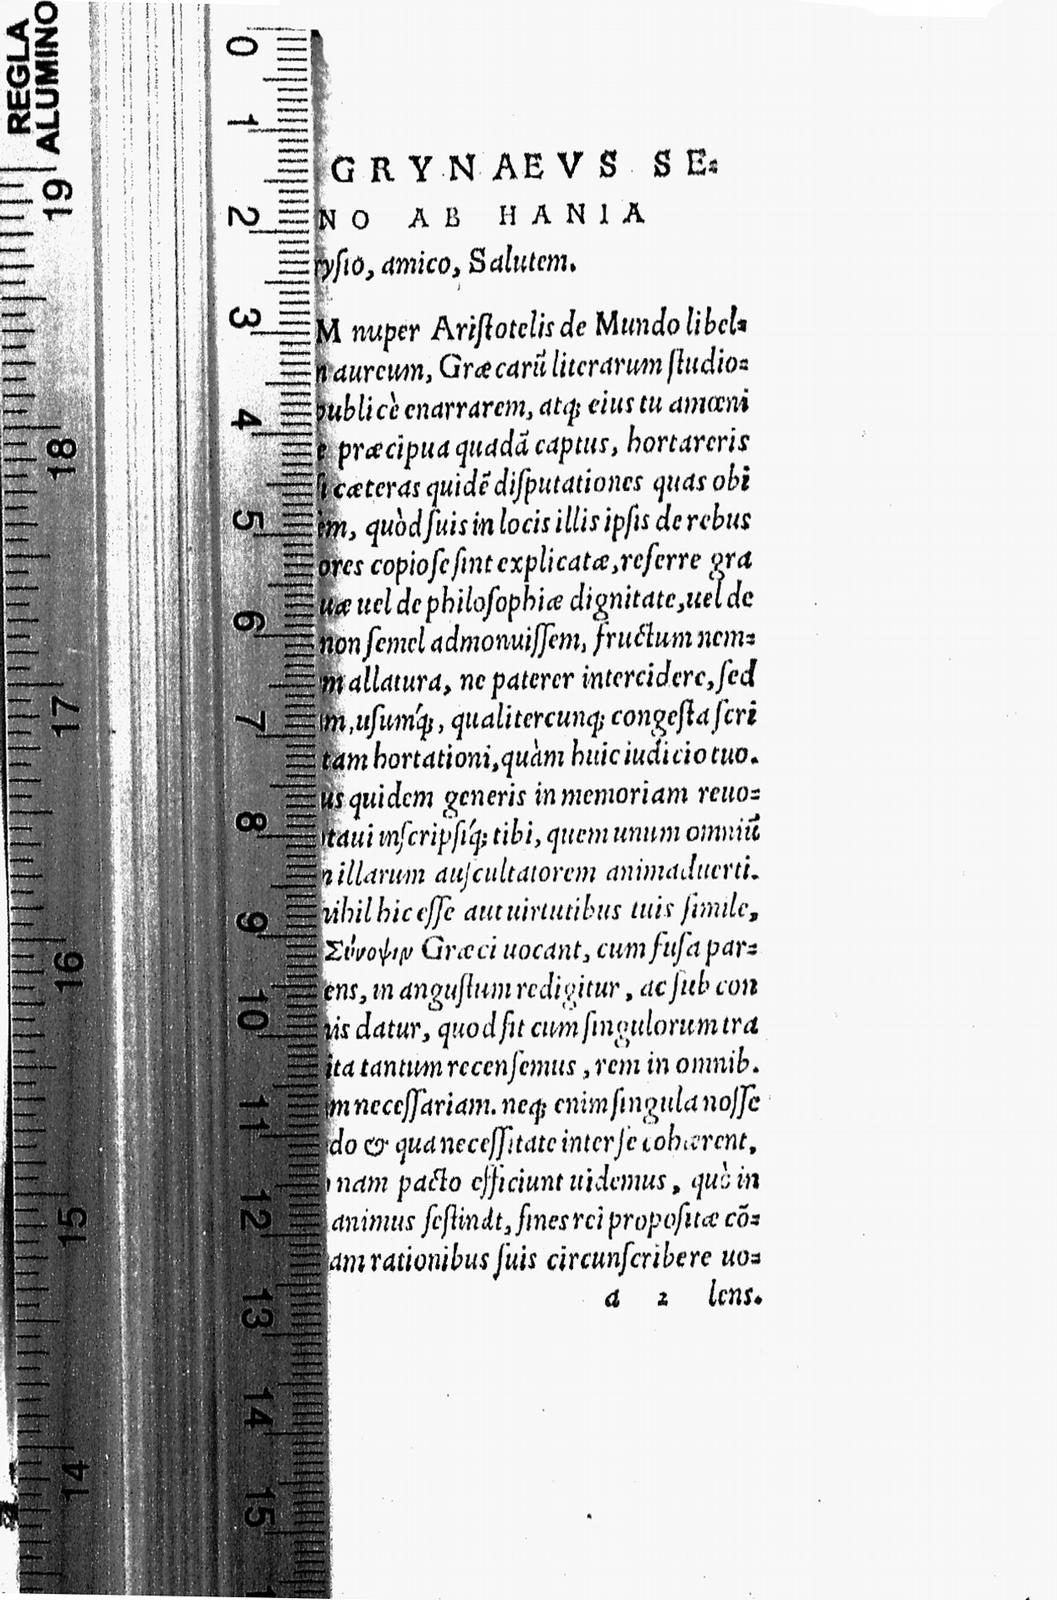 REGLA
ALUMINO
0
1
2
3
4
5
6
7
8
9
10
11
12
13
14
15
19
18
17
16
15
14
GRYNAEVS SE⸗
NO AB HANIA
ryſio, amico, Salutem.
M nuper Ariſtotelis de Mundo libel⸗
aureum, Græcarũ literarum ſtudio⸗
publicè enarrarem, atq; eius tu amœni
præcipua quadã captus, hortareris
cæteras quidẽ diſputationes quas obi
em, quòd ſuis in locis illis ipſis de rebus
ores copioſe ſint explicatæ, referre gra
uæ uel de philoſophiæ dignitate, uel de
non ſemel admonuiſſem, fructum nem⸗
m allatura, ne paterer intercidere, ſed
m, uſumq́;, qualitercunq; congeſta ſcri
tam hortationi, quàm huic iudicio tuo.
us quidem generis in memoriam reuo⸗
taui inſcripſiq́; tibi, quem unum omniũ
illarum auſcultatorem animaduerti.
nihil hic eſſe aut uirtutibus tuis ſimile,
Σύνοψιν Græci uocant, cum fuſa par⸗
ens, in anguſtum redigitur, ac ſub con
uis datur, quod fit cum ſingulorum tra
ita tantum recenſemus, rem in omnib.
m neceſſariam. neq; enim ſingula noſſe
do & qua neceſſitate inter ſe cohærent,
nam pacto efficiunt uidemus, quò in
animus feſtinat, fines rei propoſitæ cõ⸗
am rationibus ſuis circunſcribere uo⸗
a 2 lens.